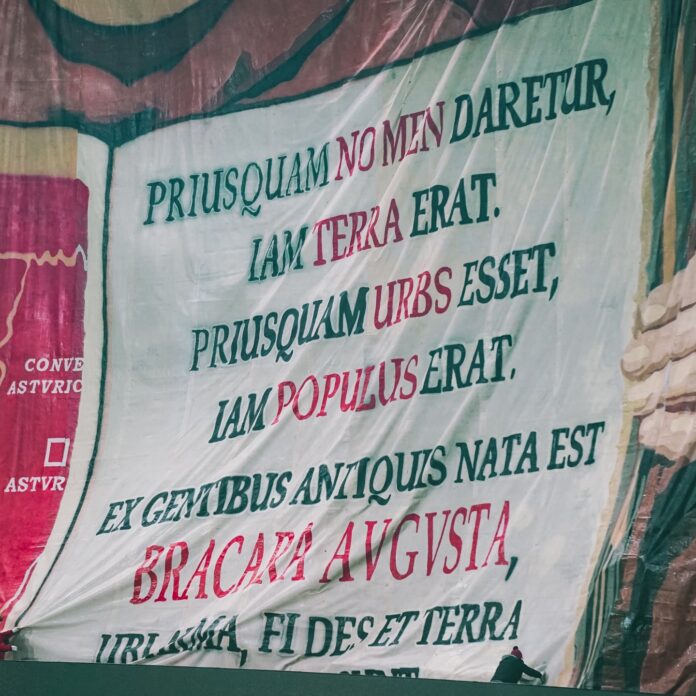 PRIUSQUAM NOMEN DARETUR,
IAM TERRA ERAT.
PRIUSQUAM URBS ESSET,
IAM POPULUS ERAT.
EX GENTIBUS ANTIQUIS NATA EST
BRACARA AVGVSTA,
FIDES ET TERRA
CONVE
ASTVRIC
ASTVR